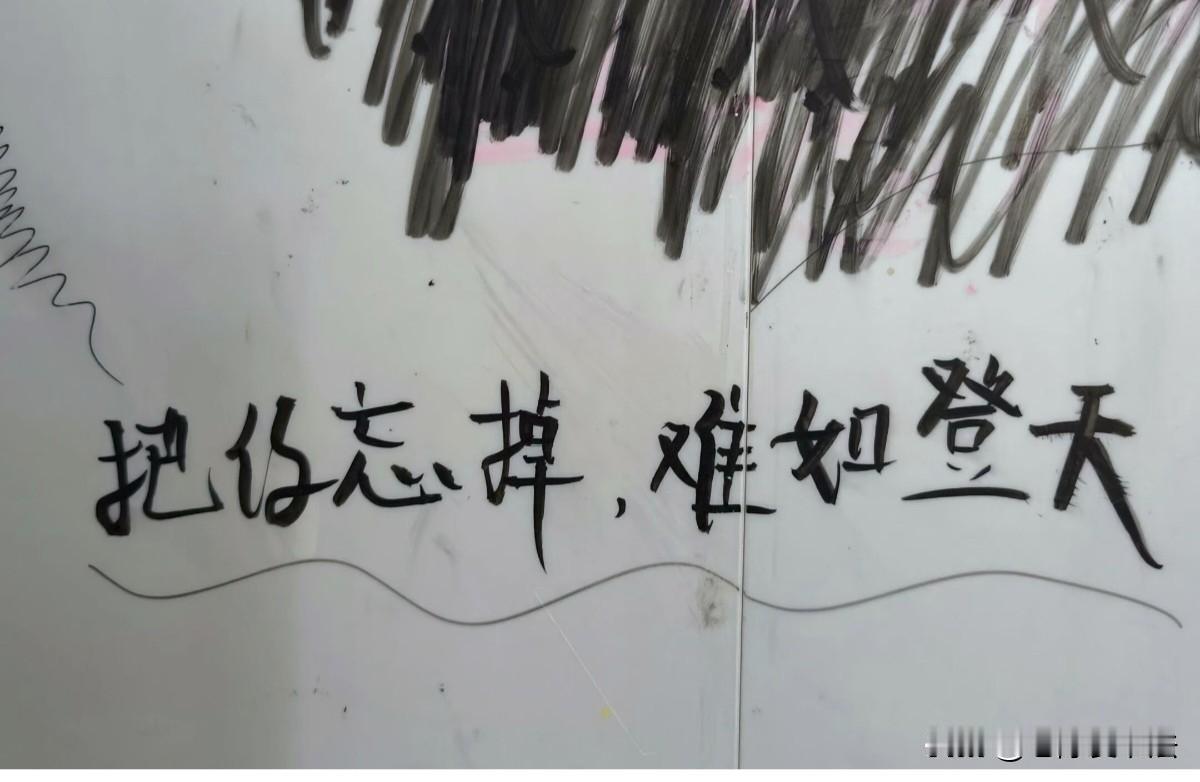 把你忘掉，难如登天